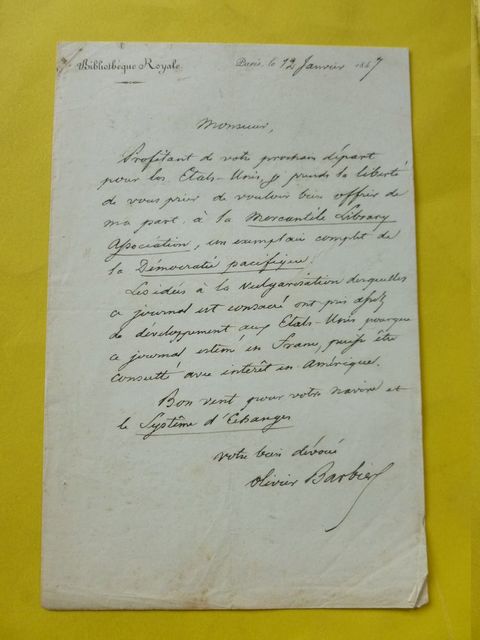 Bibliothèque Royale.
Paris, le 12 Janvier 1847
Monsieur,
Profitant de votre prochain départ
pour les Etats-Unis, je prends la liberté
de vous prier de vouloir bien offrir de
ma part à la Mercantile Library
Association, un exemplaire complet de
la Démocratie pacifique.
Les idées à la Vulgarisation desquelles
ce journal est consacré ont pris assez
de développement aux Etats-Unis pour que
ce journal estimé en France, puisse être
consulté avec intérêt en Amérique.
Bon vent pour votre navire et
le Système d'Echanges
votre bien dévoué
Olivier Barbier